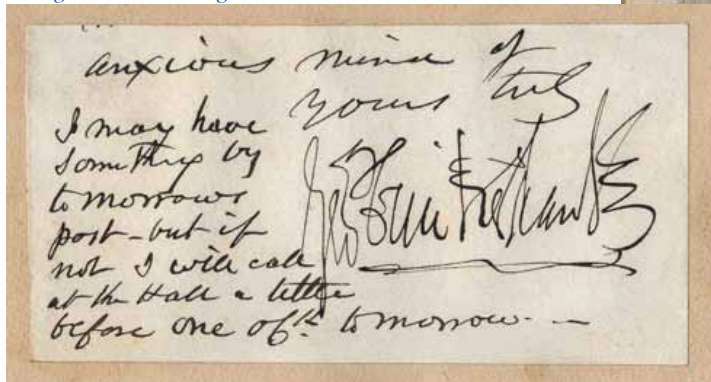 anxious mind of
yours truly
Geo Cruikshank
I may have
something by
tomorrows
post - but if
not I will call
at the Hall a little
before one tomorrow. —